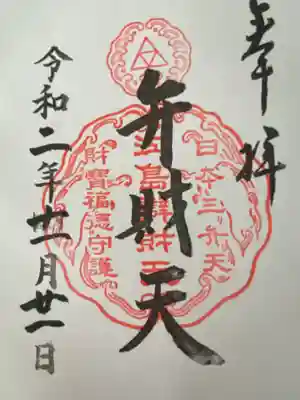 奉拝
日本三弁天
弁財天
江島辨財天
財寶福徳守護
令和二年十一月廿一日